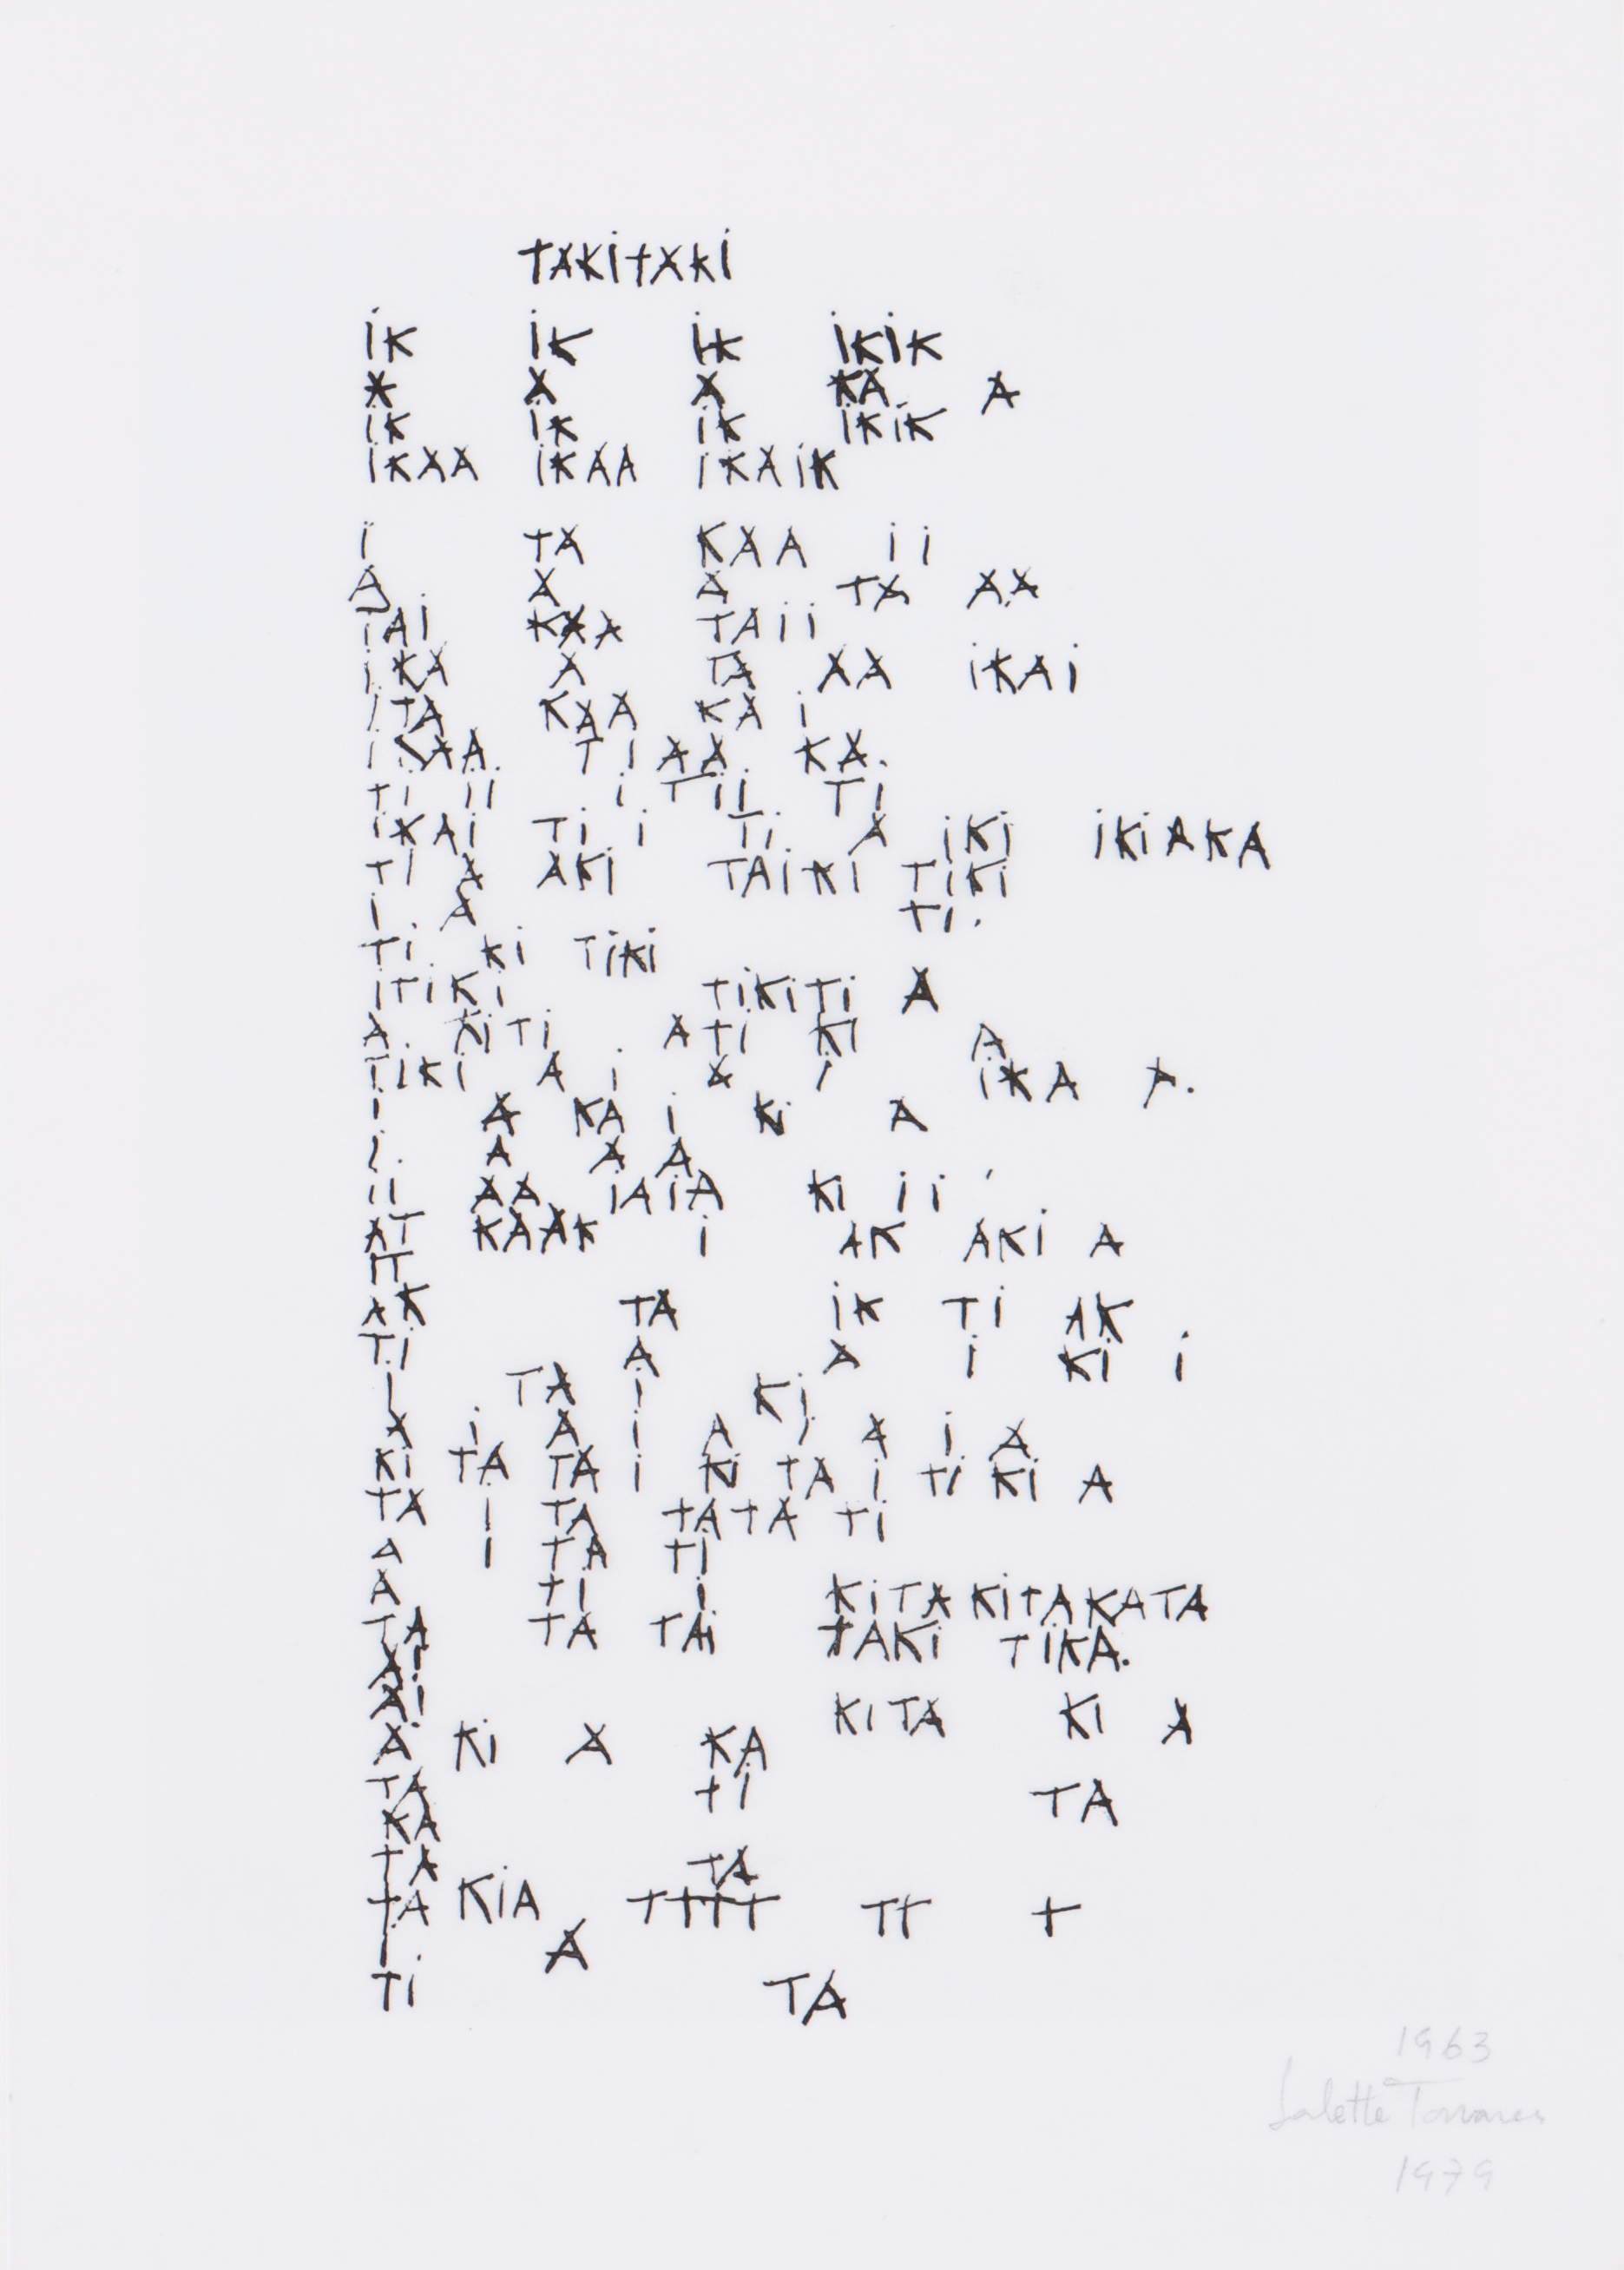 TAKITAKI
iK iK iK iKiK
A A A KA A
iK iK iK iKiK
iKAA iKAA iKAiK
i TA KAA ii
A A A TA AA
TAi KAA TAii
iKA A TA AA iKAi
iTA KAA KA i
iKAA Ti AA KA
Ti ii i Tii Ti
iKAi Ti i Ti A iKi iKiAKA
Ti A AKi TAiKi TiKi
i A Ti
Ti Ki TiKi
iTiKi TiKiTi A
A KiTi A Ti Ki A
TiKi A i A i iKA A.
i A KA i Ki A
i A A A
ii AA iAiA Ki ii
AT KAAK i AK AKi A
iT
AK TA iK Ti AK
Ti A A i Ki i
i TA i Ki
A i A i A i A i A
Ki TA TA i Ki TA i Ti Ki A
TA i TA TATA Ti
A i TA Ti
A Ti i KiTAKiTAKATA
TA TA TAi TAKi TiKA.
Ai
Ai KiTA Ki A
A Ki A KA
TA Ti TA
KA
TA TA
TA KiA TTTT TT T
i A
Ti TA
1963
Salette Tavares
1979